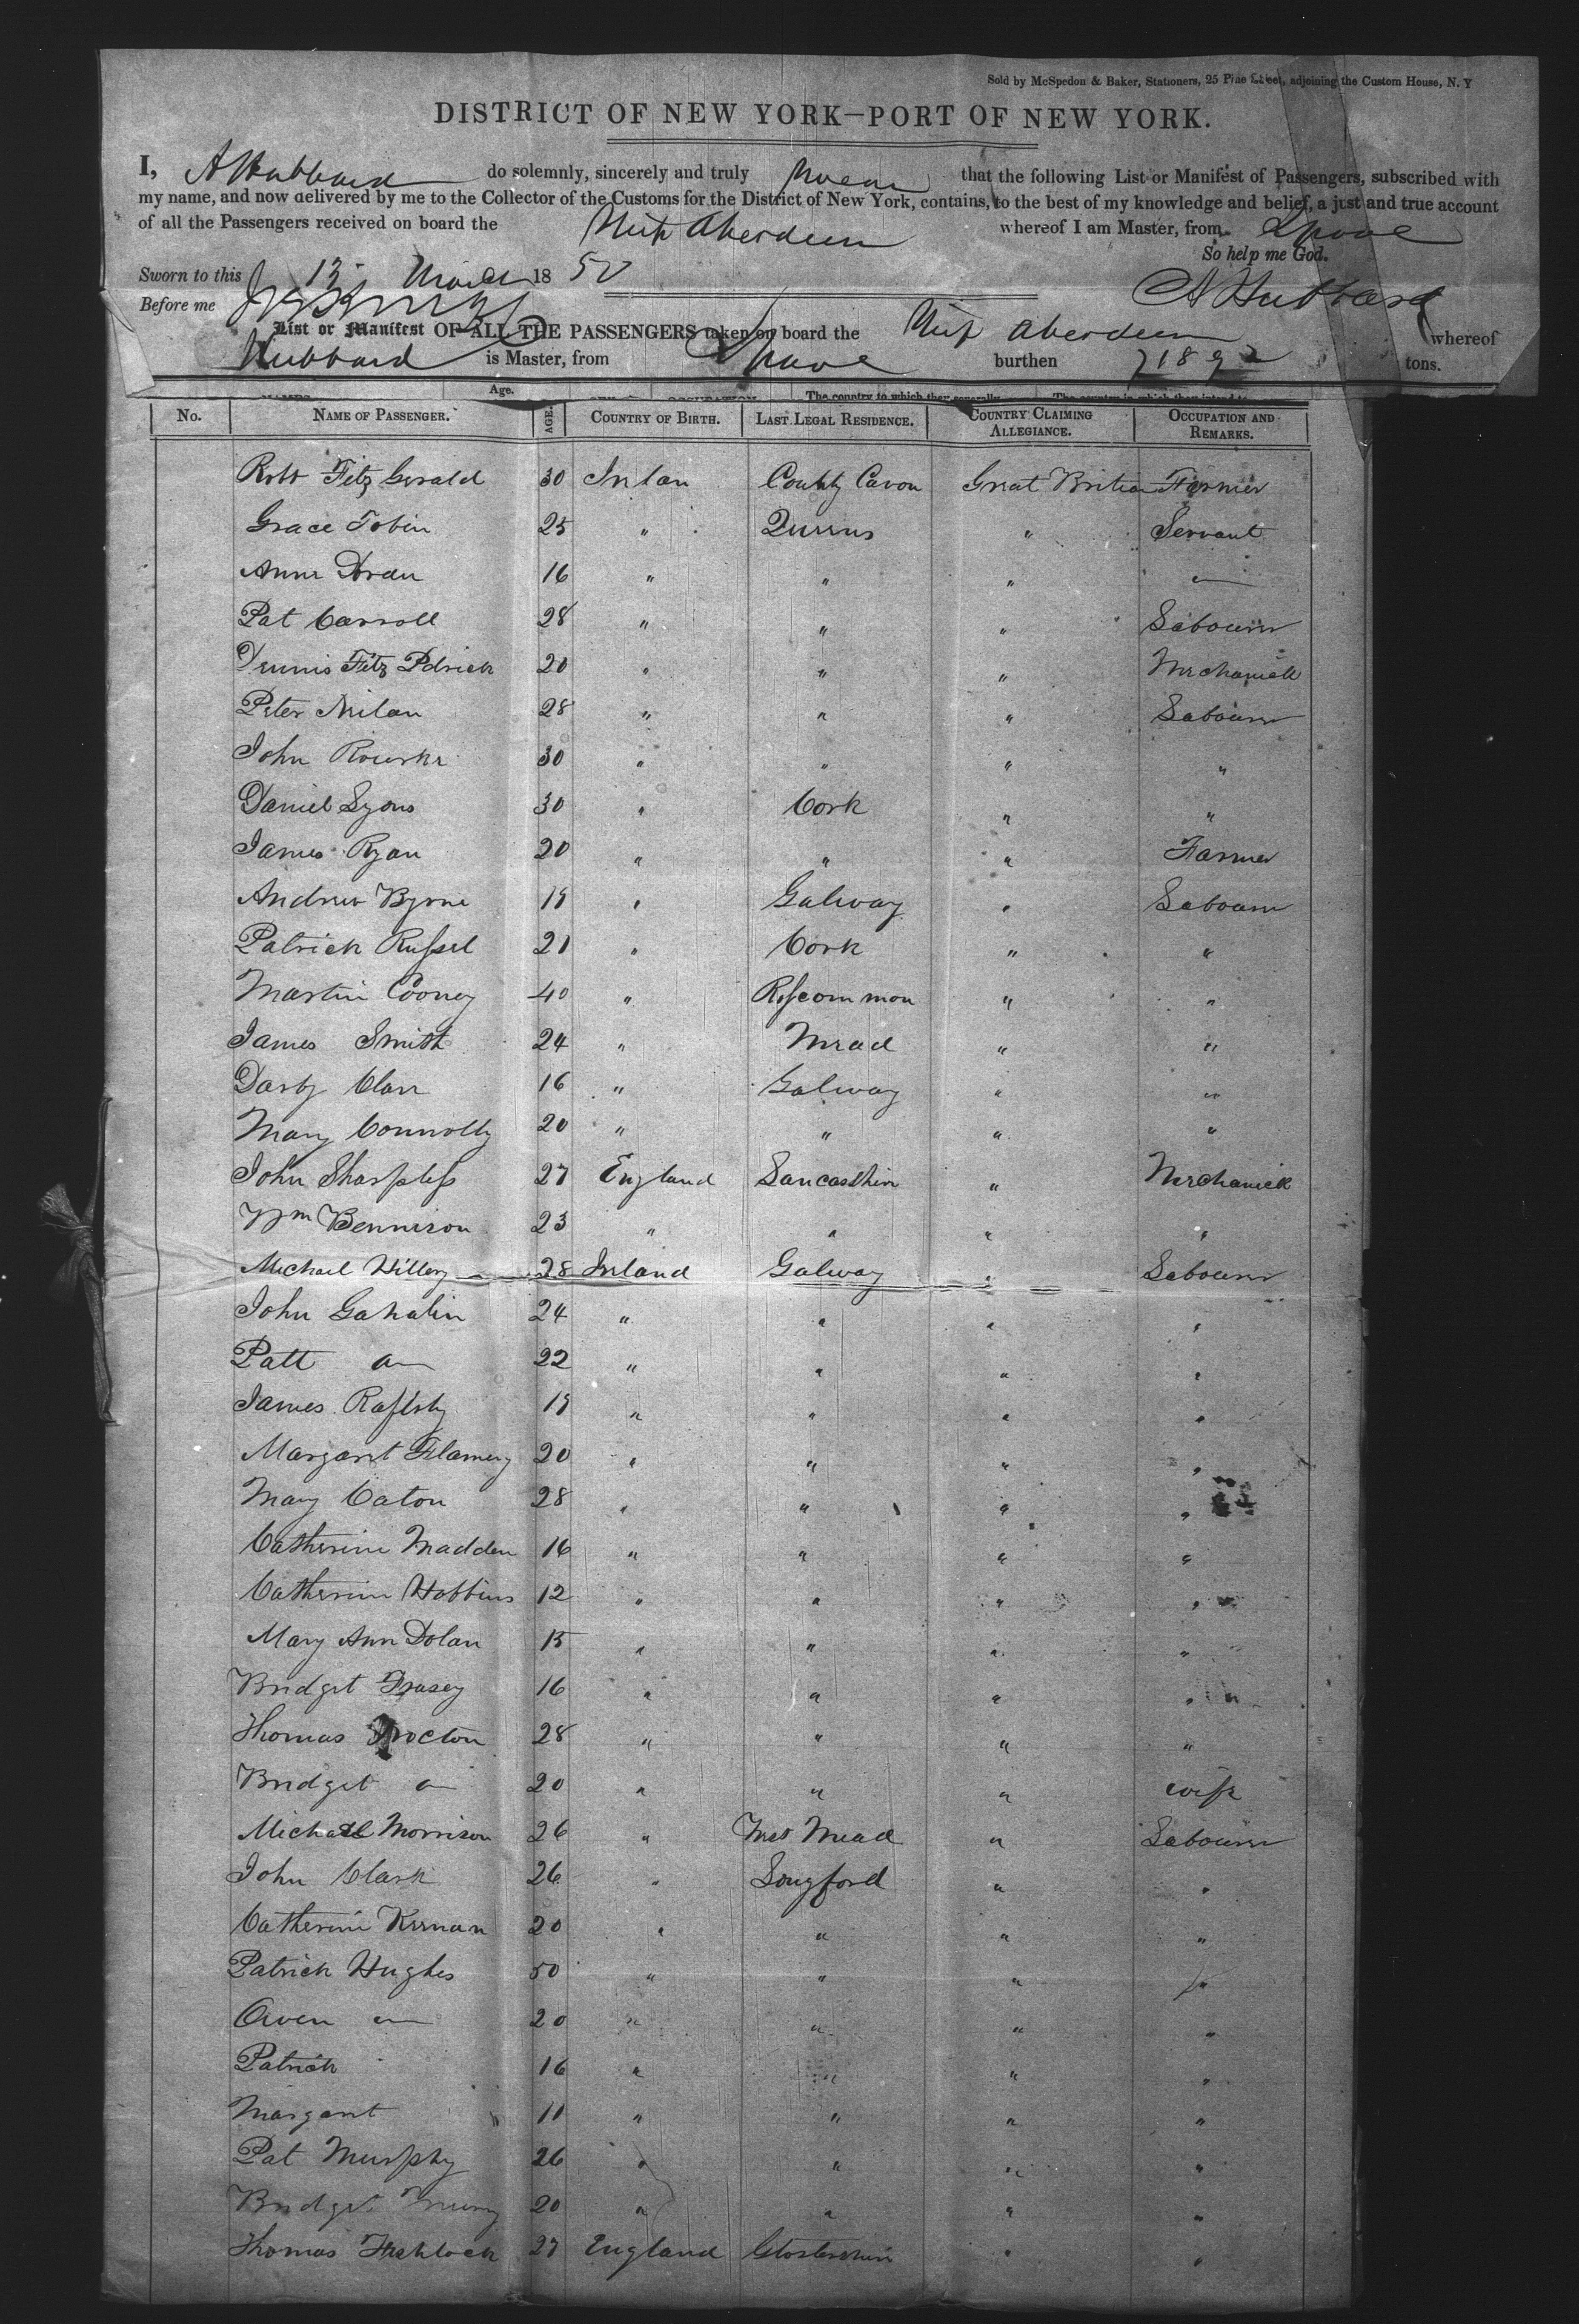 Sold by McSpedon & Baker, Stationers, 25 Pine Street, adjoining the Custom House, N. Y
DISTRICT OF NEW YORK—PORT OF NEW YORK.
I, A Hubbard do solemnly, sincerely and truly swear that the following List or Manifest of Passengers, subscribed with
my name, and now delivered by me to the Collector of the Customs for the District of New York, contains, to the best of my knowledge and belief, a just and true account
of all the Passengers received on board the Ship Aberdeen whereof I am Master, from Lpool
So help me God.
Sworn to this 13 March 1850
Before me A Hubbard
List or Manifest OF ALL THE PASSENGERS taken on board the Ship Aberdeen whereof
Hubbard is Master, from Lpool burthen 718 92 tons.
Age.
No. NAME OF PASSENGER. AGE. COUNTRY OF BIRTH. LAST LEGAL RESIDENCE. COUNTRY CLAIMING ALLEGIANCE. OCCUPATION AND REMARKS.
Robt Fitz Gerald 30 Irelan County Cavan Great Britian Farmer
Grace Tobin 25 " Queens " Servant
Anne Doran 16 " " "
Pat Carroll 28 " " " Labourer
Dennis Fitz Patrick 20 " " " Mechanick
Peter Nilan 28 " " " Labourer
John Rourke 30 " " " "
Daniel Lyons 30 " Cork " "
James Ryan 20 " " " Farmer
Andrew Byrne 19 " Galway " Labourer
Patrick Russel 21 " Cork " "
Martin Cooney 40 " Roscommon " "
James Smith 24 " Mead " "
Darby Clan 16 " Galway " "
Mary Connolly 20 " " " "
John Sharpless 27 England Lancashire " Mechanick
Wm Bennison 23 " " " "
Michael Hillery 28 Ireland Galway " Labourer
John Gahalin 24 " " " "
Patt 22 " " " "
James Raftery 19 " " " "
Margaret Flamery 20 " " " "
Mary Caton 28 " " " "
Catherine Madden 16 " " " "
Catherine Hobbins 12 " " " "
Mary Ann Dolan 15 " " " "
Bridget 16 " " " "
Thomas Procton 28 " " " "
Bridget 20 " " " wife
Michael Morrison 26 " West Mead " Labourer
John Clark 26 " Longford " "
Catherine Kernan 20 " " " "
Patrick Hughes 50 " " " "
Owen 20 " " " "
Patrick 16 " " " "
Margaret 11 " " " "
Pat Murphy 26 " " " "
Bridget 20 " " " "
Thomas 27 England Glostershire " "